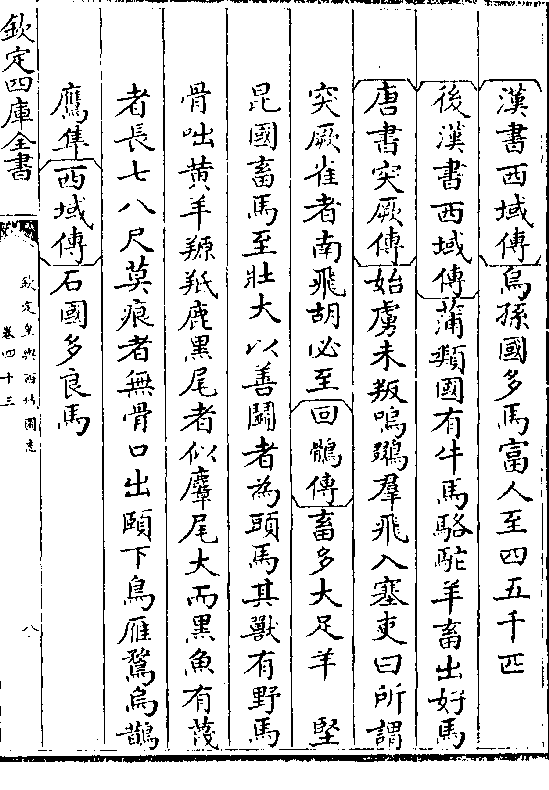 漢書西域傳烏孫國多馬富人至四五千匹
後漢書西域傳蒲類國有牛馬駱駝羊畜出好馬
唐書突厥傳始虜未叛鳴鵽羣飛入塞吏曰所謂
突厥雀者南飛胡必至回鶻傳畜多大足羊 堅
昆國畜馬至壯大以善鬬者為頭馬其獸有野馬
骨咄黃羊羱羝鹿黑尾者似麞尾大而黑魚有蔑
者長七八尺莫痕者無骨口出頤下鳥雁鶩烏鵲
鷹隼西域傳石國多良馬
欽定四庫全書
欽定皇輿西域圖志
卷四十三
八